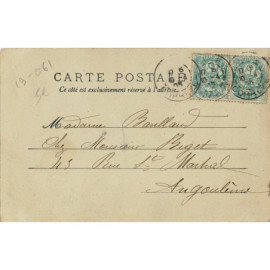 13-061
CARTE POSTALE
Ce côté est exclusivement réservé à l'adresse.
Madame
Chez Monsieur Biget
43 Rue St Martial
Angoulême